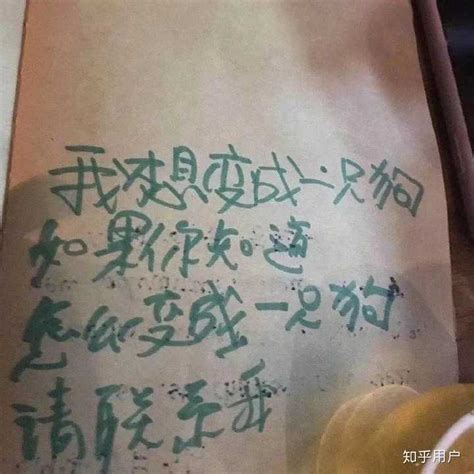 我想变成一只狗
如果你知道
怎么变成一只狗
请联系我
知乎用户